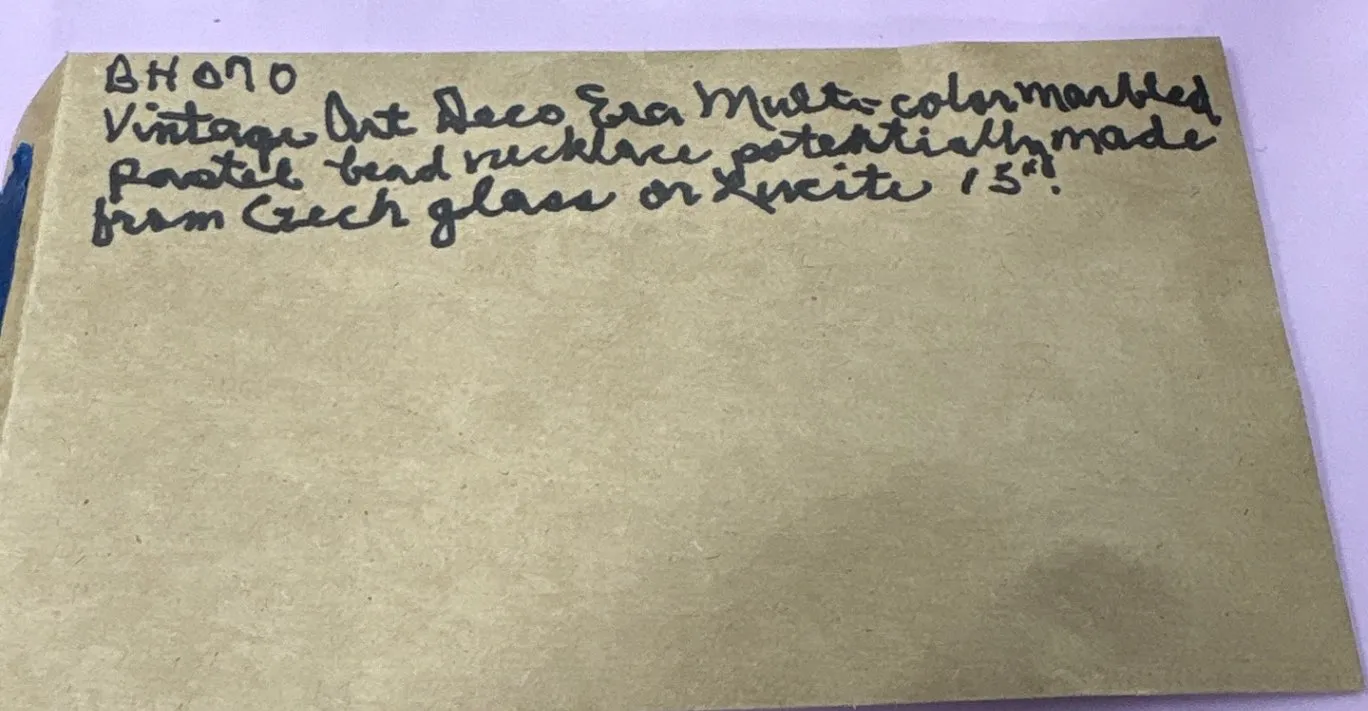 BH070
Vintage Art Deco Era Multi-color marbled
pastel bead necklace potentially made
from Czech glass or Lucite 15".